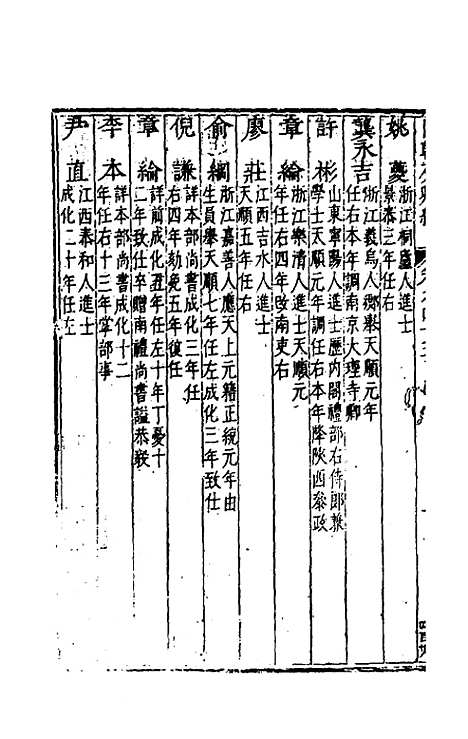 姚夔
浙江桐廬人進士
景泰三年任右
龔永吉
浙江義烏人鄉舉天順元年
任右本年調南京大理寺卿
許彬
山東寧陽人進士歷内閣禮部右侍郎兼
學士天順元年調任右本年降陝西參政
章綸
浙江樂清人進士天順元
年任右四年改南吏右
廖莊
江西吉水人進士
天順五年任右
俞綱
浙江嘉善人應天上元籍正統元年由
生員舉天順七年任左成化三年致仕
倪謙
詳本部尚書成化三年任
右四年劾免五年復任
章綸
詳前成化丑年任左十年丁憂十
二年致仕卒贈南禮尚書謚恭毅
李本
詳本部尚書成化十二
年任右十三年掌部事
尹直
江西泰和人進士
成化二十年任左